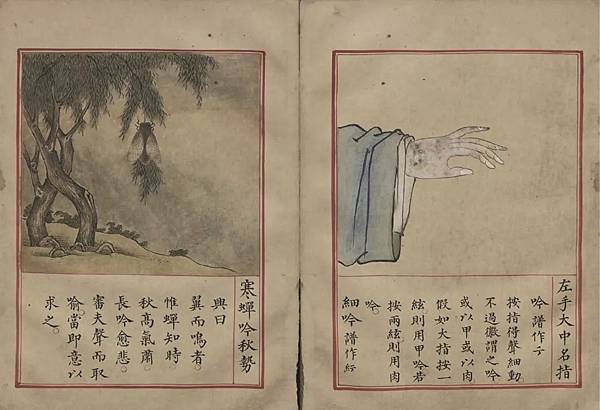 左手大中名指
吟 譜作
按指得聲細動
不過徽謂之吟
或以甲或以肉
假如大指按一
絃則用甲吟若
按兩絃則用肉
吟。
細吟 譜作
寒蟬吟秋勢
興曰
翼而鳴者。
惟蟬知時。
秋高氣肅。
長吟愈悲。
審夫聲而取
喻當即意以
求之。